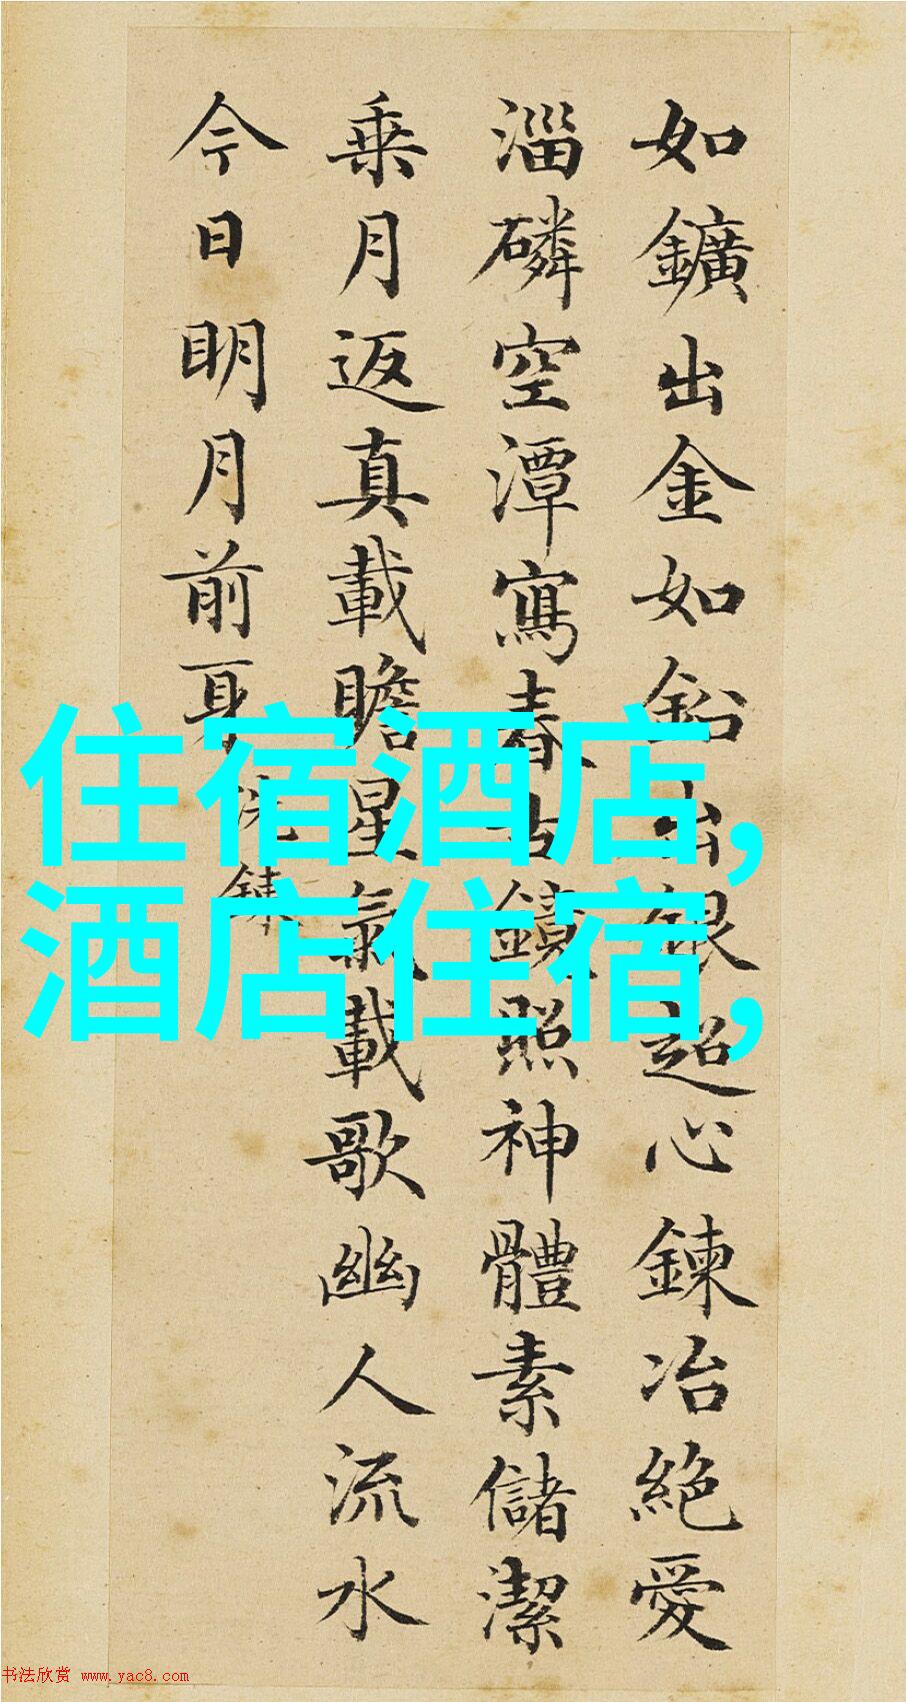 如鑛出金如鉛出銀超心鍊冶絕愛
淄磷空潭寫春古鏡照神體素儲潔
乘月返真載瞻星氣載歌幽人流水
今日明月前身
洗鍊
住宿酒店,
酒店住宿,
书法欣赏 www.yac8.com